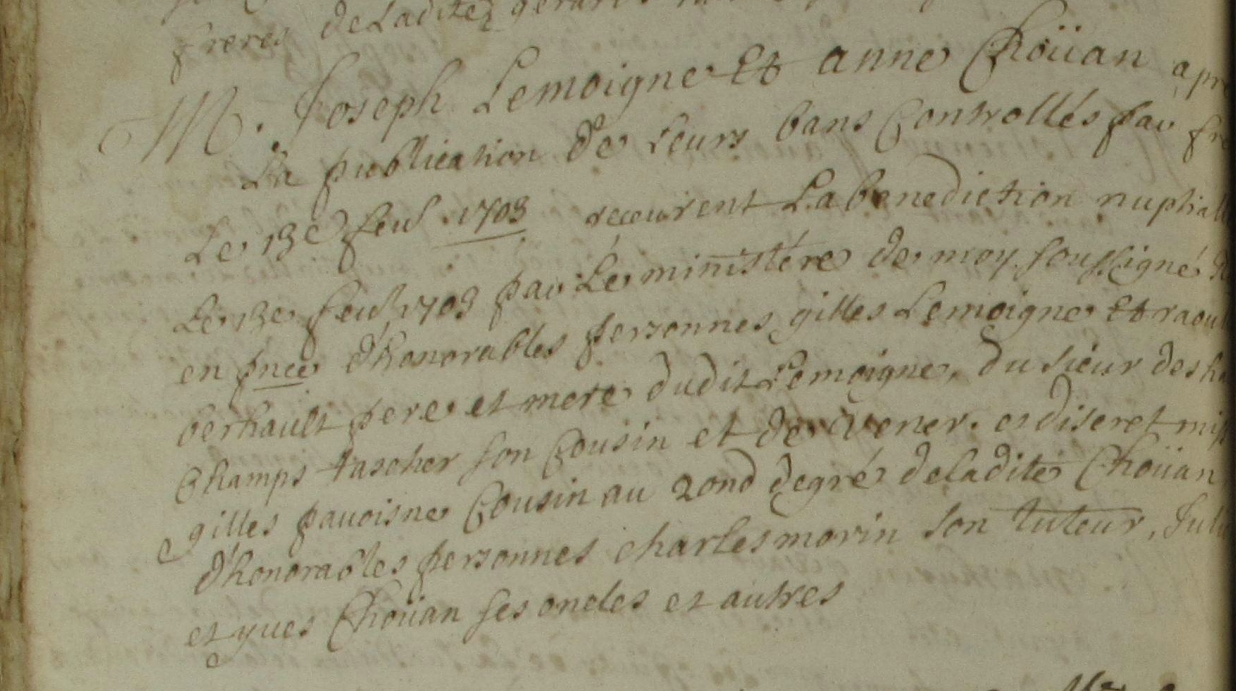 freres deladite gerard
M. Joseph Lemoigne Et anne Choüan apre
La publication de Leurs bans Controllés par fr
Le 13e feuʳ 1703 receurent La benediction nuptiall
Le 13e feuʳ 1703 par Le ministére de moy soussigné
en pnce d'honorables personnes gilles Lemoigne Et raoul
berhault pere et mere dudit Lemoigne, du sieur des ha
Champs tascher son Cousin et de Vener. et discret mis
gilles pavoisne Cousin au 2ond degré deladite Choüan
d'honorables personnes charles morin son tuteur, Juli
et yues Choüan ses oncles et autres